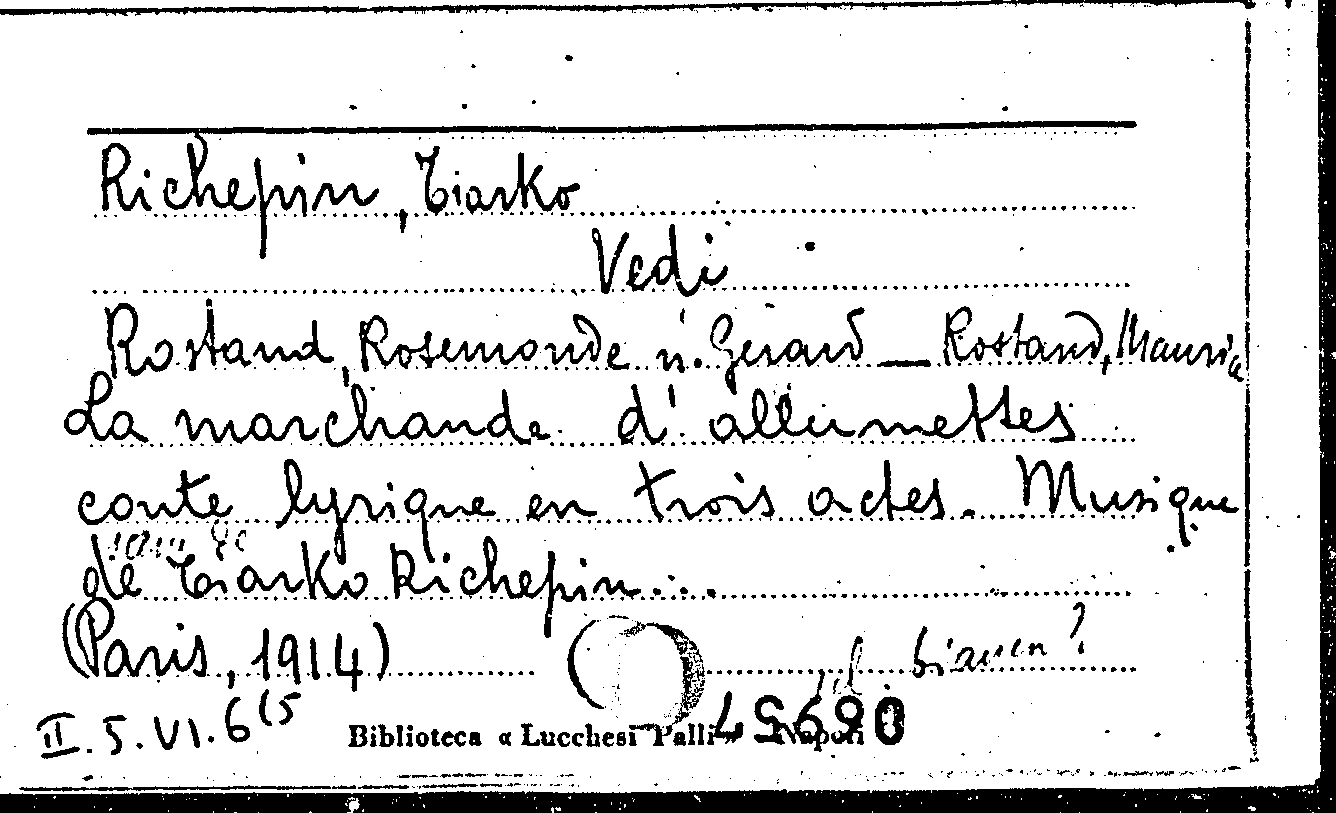 Richepin, Tiarko
Vedi
Rostand, Rosemonde n. Gerard — Rostand, Maurice
La marchande d'allumettes
conte lyrique en trois actes. Musique
de Tiarko Richepin...
(Paris, 1914)
II.5.VI.6(5
Biblioteca « Lucchesi Palli » Napoli